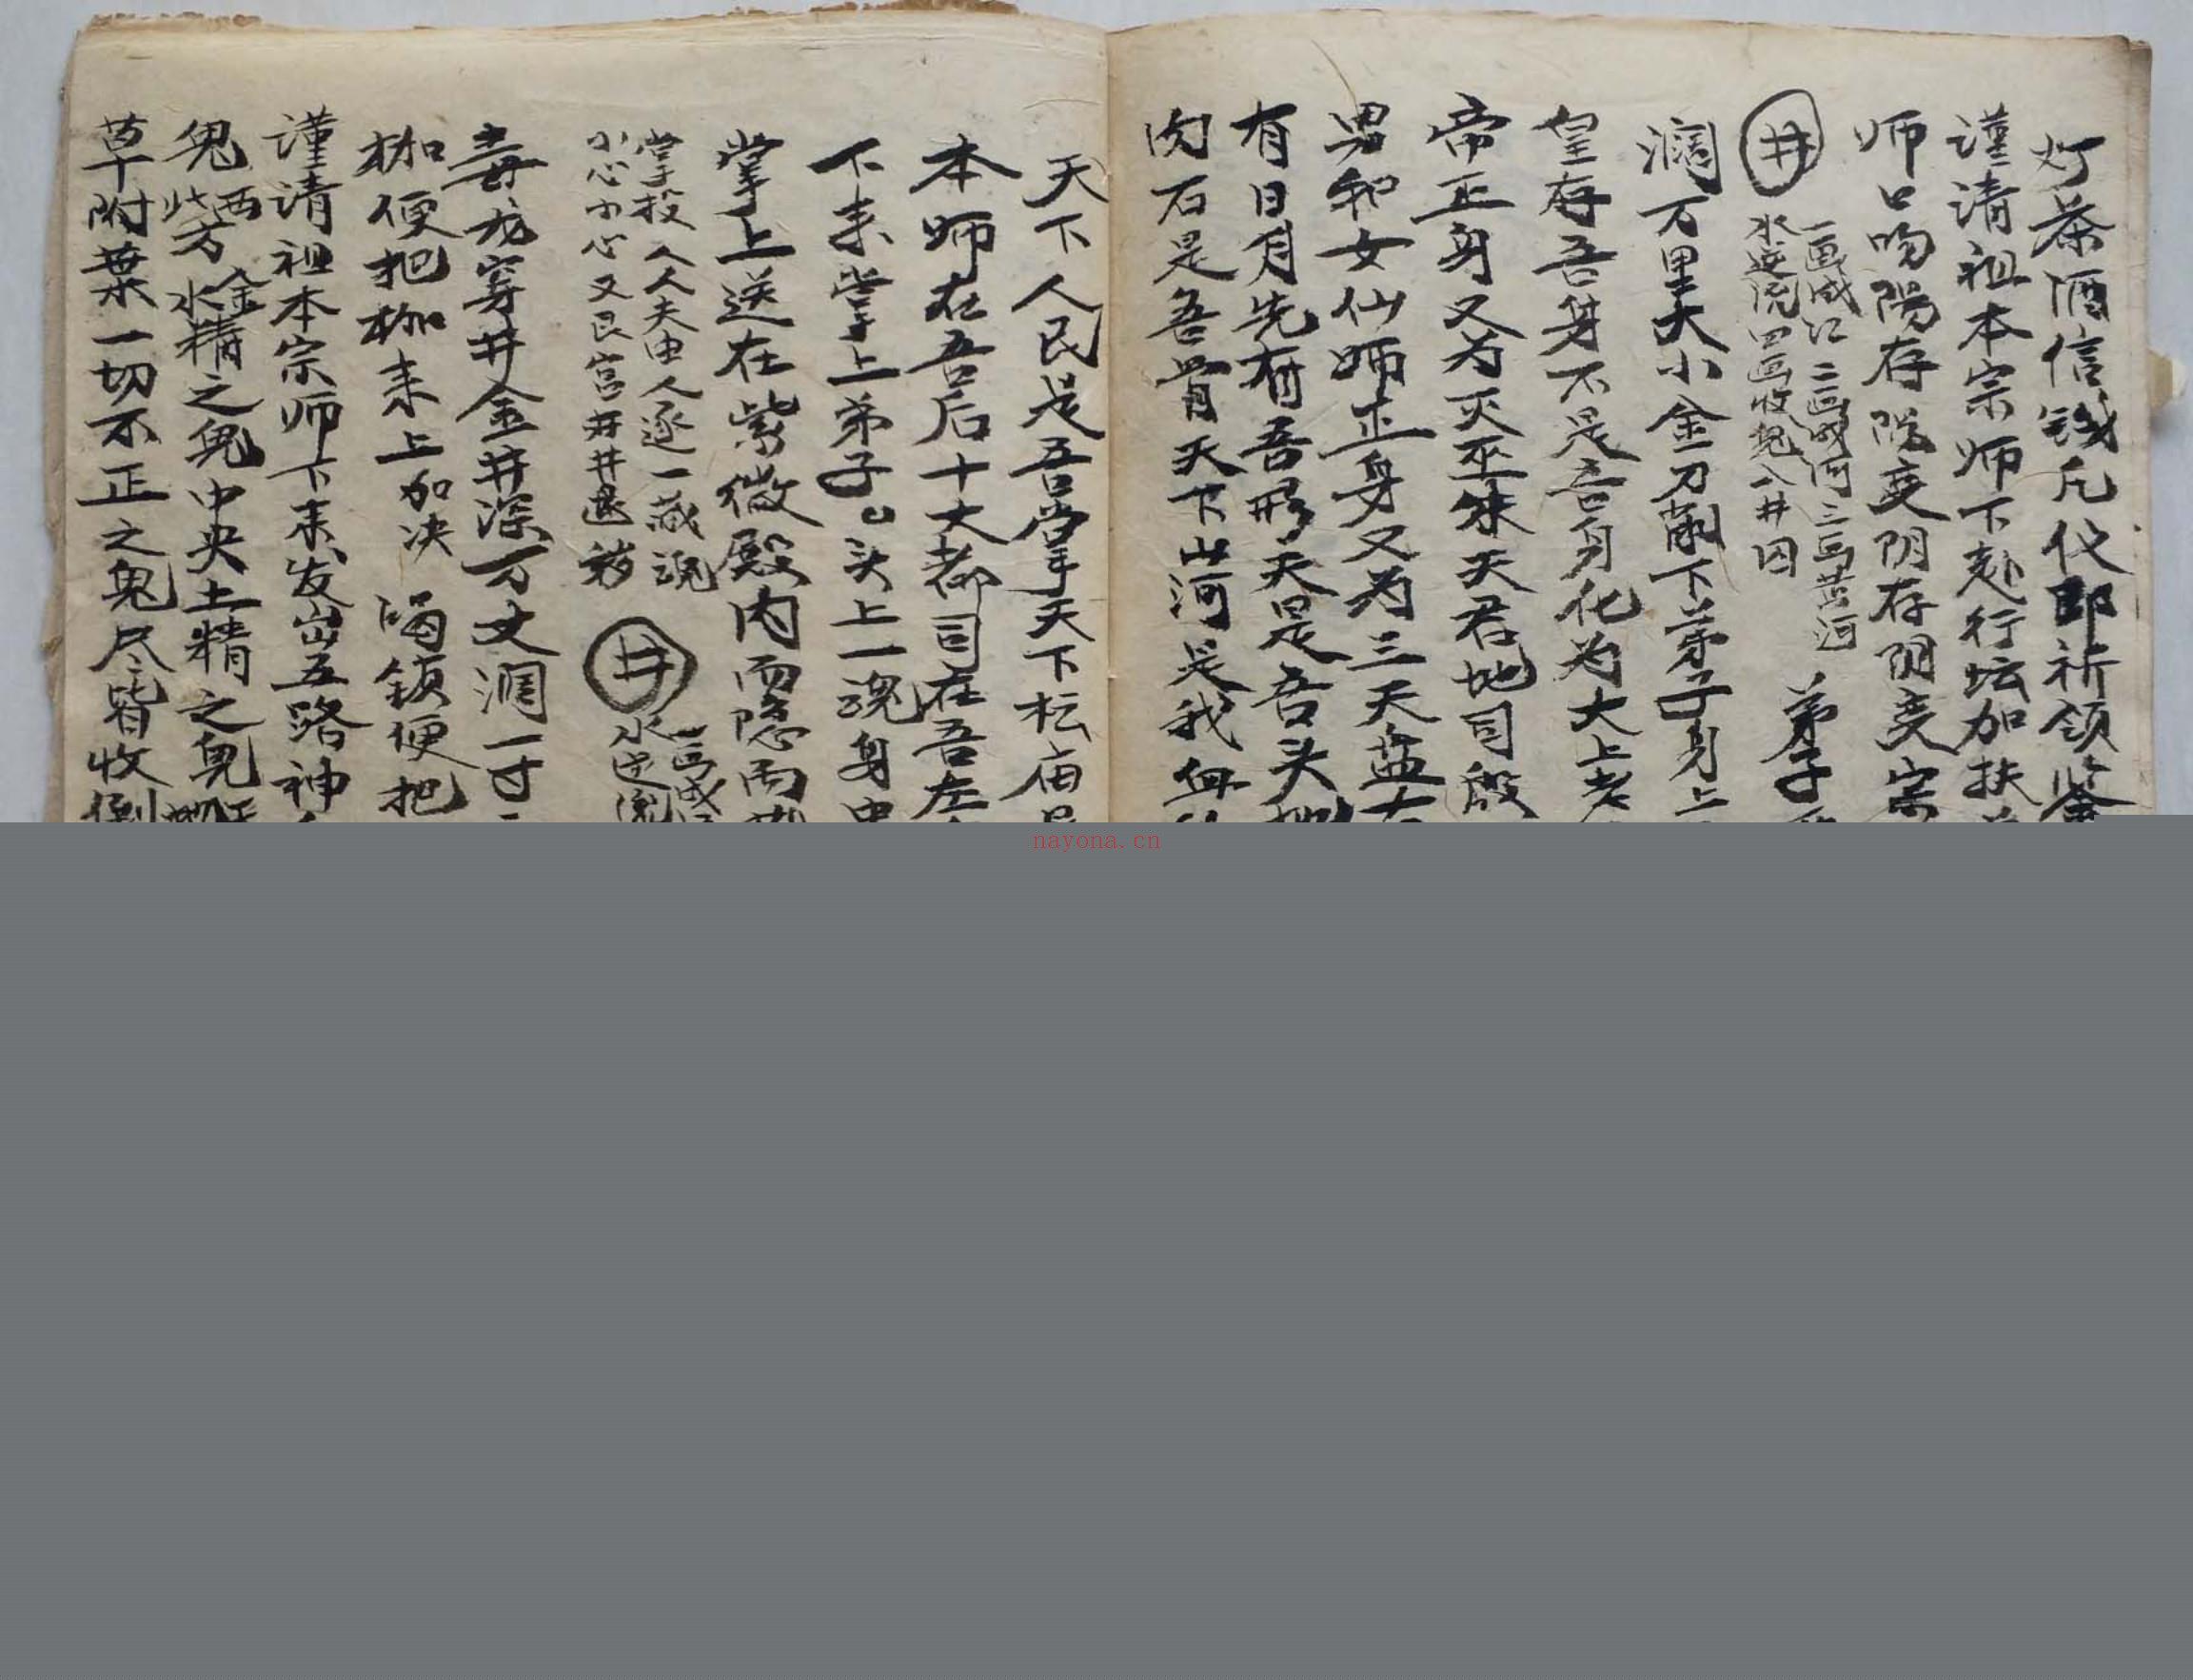 灯茶酒信钱凡化郎祈领鉴
谨请祖本宗师下赴行坛加扶
师口吻阳存阴变阴存阴变宗
井 一画成江二画成河三画黄河
水逆流四画收魂入井囚 弟子
阔万里大小金刀剐下弟子身上
皇存吾身不是吾身化为大上老
帝正身又为灭巫朱天君地司殷
男和女仙师正身又为三天蓝
有日月先有吾形天是吾头
肉石是吾骨天下山河是我血
天下人民是吾掌天下坛庙
本师在吾后十大都司在吾左
下来掌上弟子头上一魂身中
掌上送在紫微殿内而隐而
掌投人人夫由人逐一藏魂
小心小心又艮宫井井 井 水逆
毒龙穿井金井深万丈阔一寸
枷便把枷来上加决 锁便把
谨请祖本宗师下来发出五路神
鬼西方金水精之鬼中央土精之鬼
草附叶一切不正之鬼尽皆收
nayona.cn